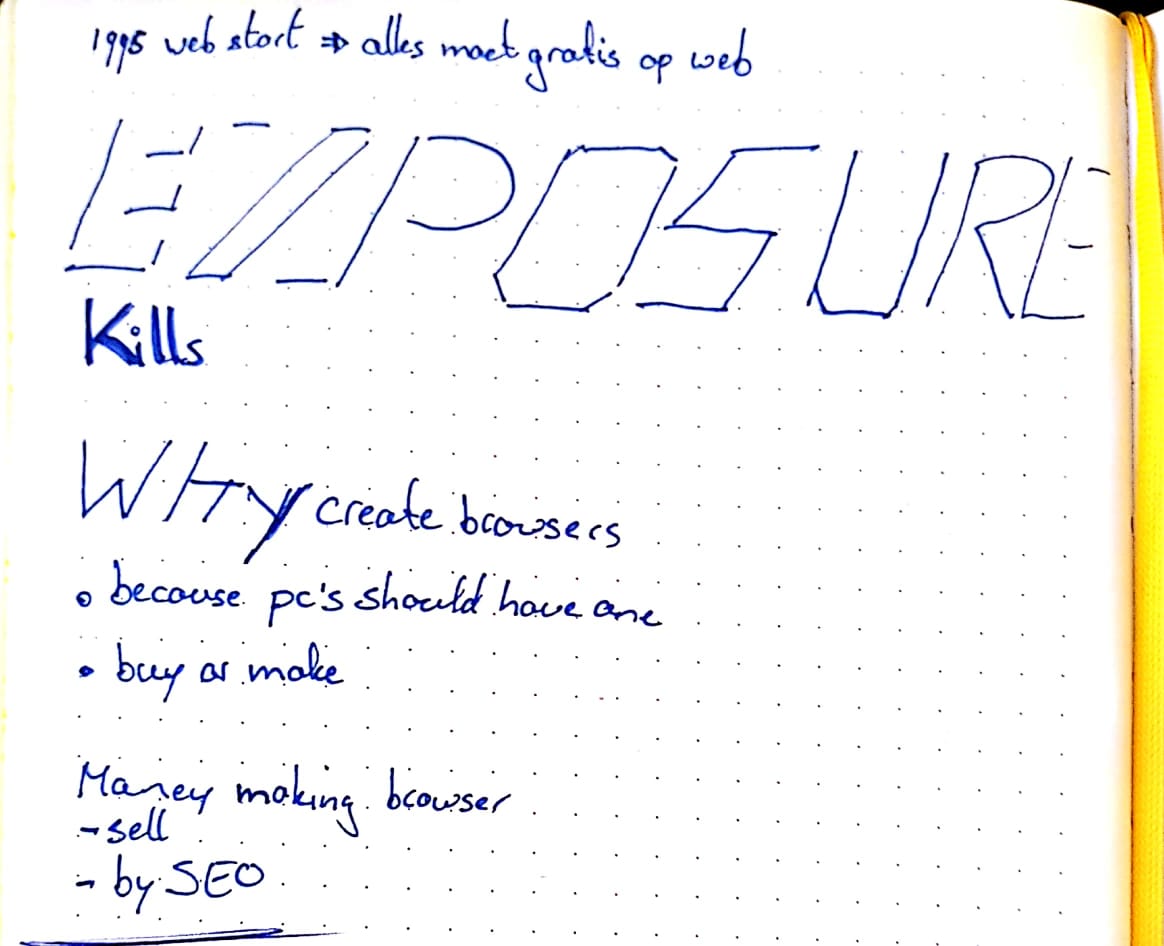 1995 web start ⇒ alles moet gratis op web
EXPOSURE
Kills
WHY create browsers
° because pc's should have one
• buy or make
Money making browser
- sell
- by SEO